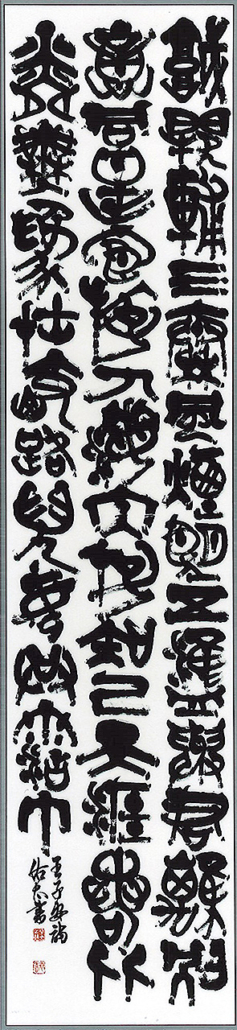 城闕輔三秦風煙望五津與君離別
意同是宦遊人海內存知己天涯若比
鄰無為在歧路兒女共沾巾
王子安詩